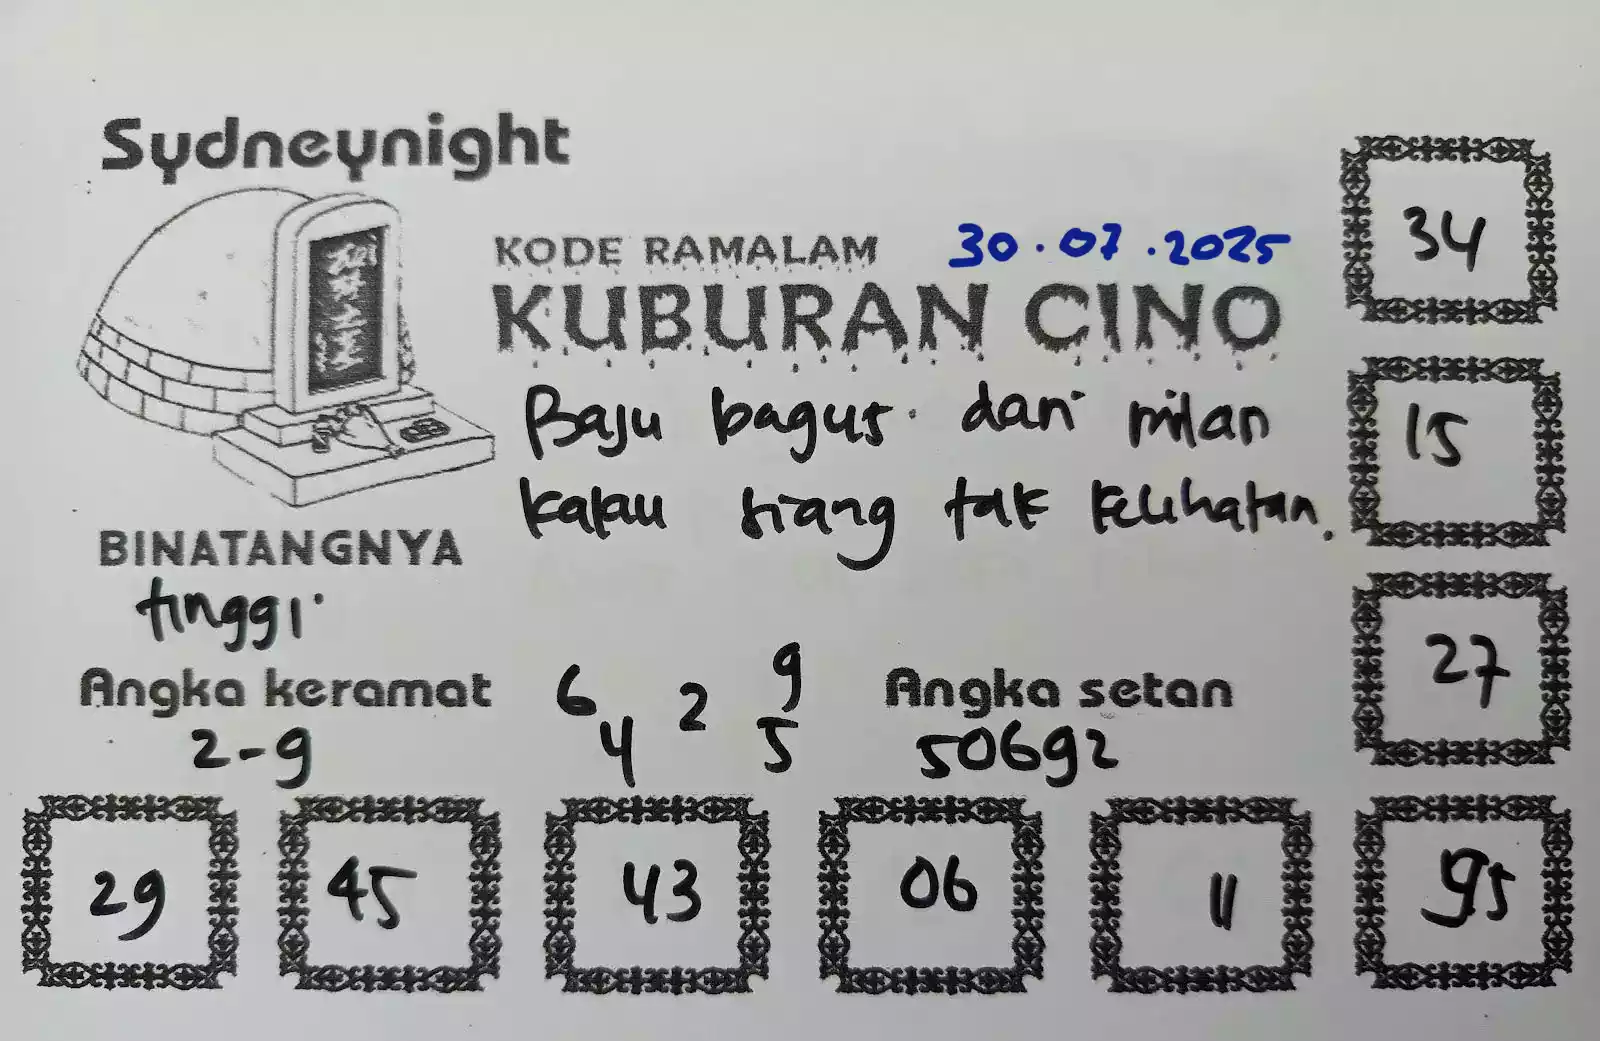 Sydneynight
KODE RAMALAM 30.07.2025
KUBURAN CINO
Baju bagus dari milan
kalau siang tak kelihatan.
BINATANGNYA
tinggi
Angka keramat
2-9
6 2 9
4 5
Angka setan
50692
34
15
27
29
45
43
06
11
95